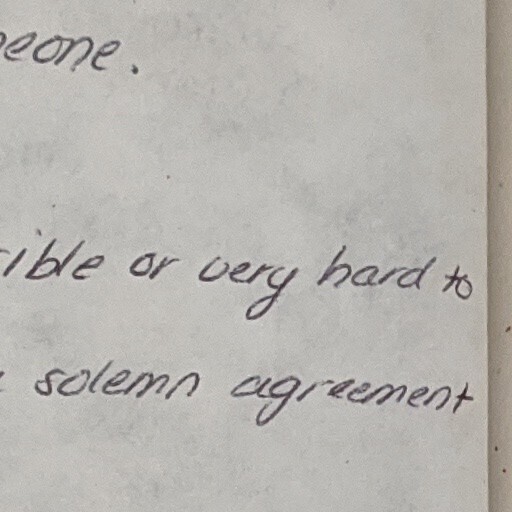 eone.
ible or very hard to
solemn agreement